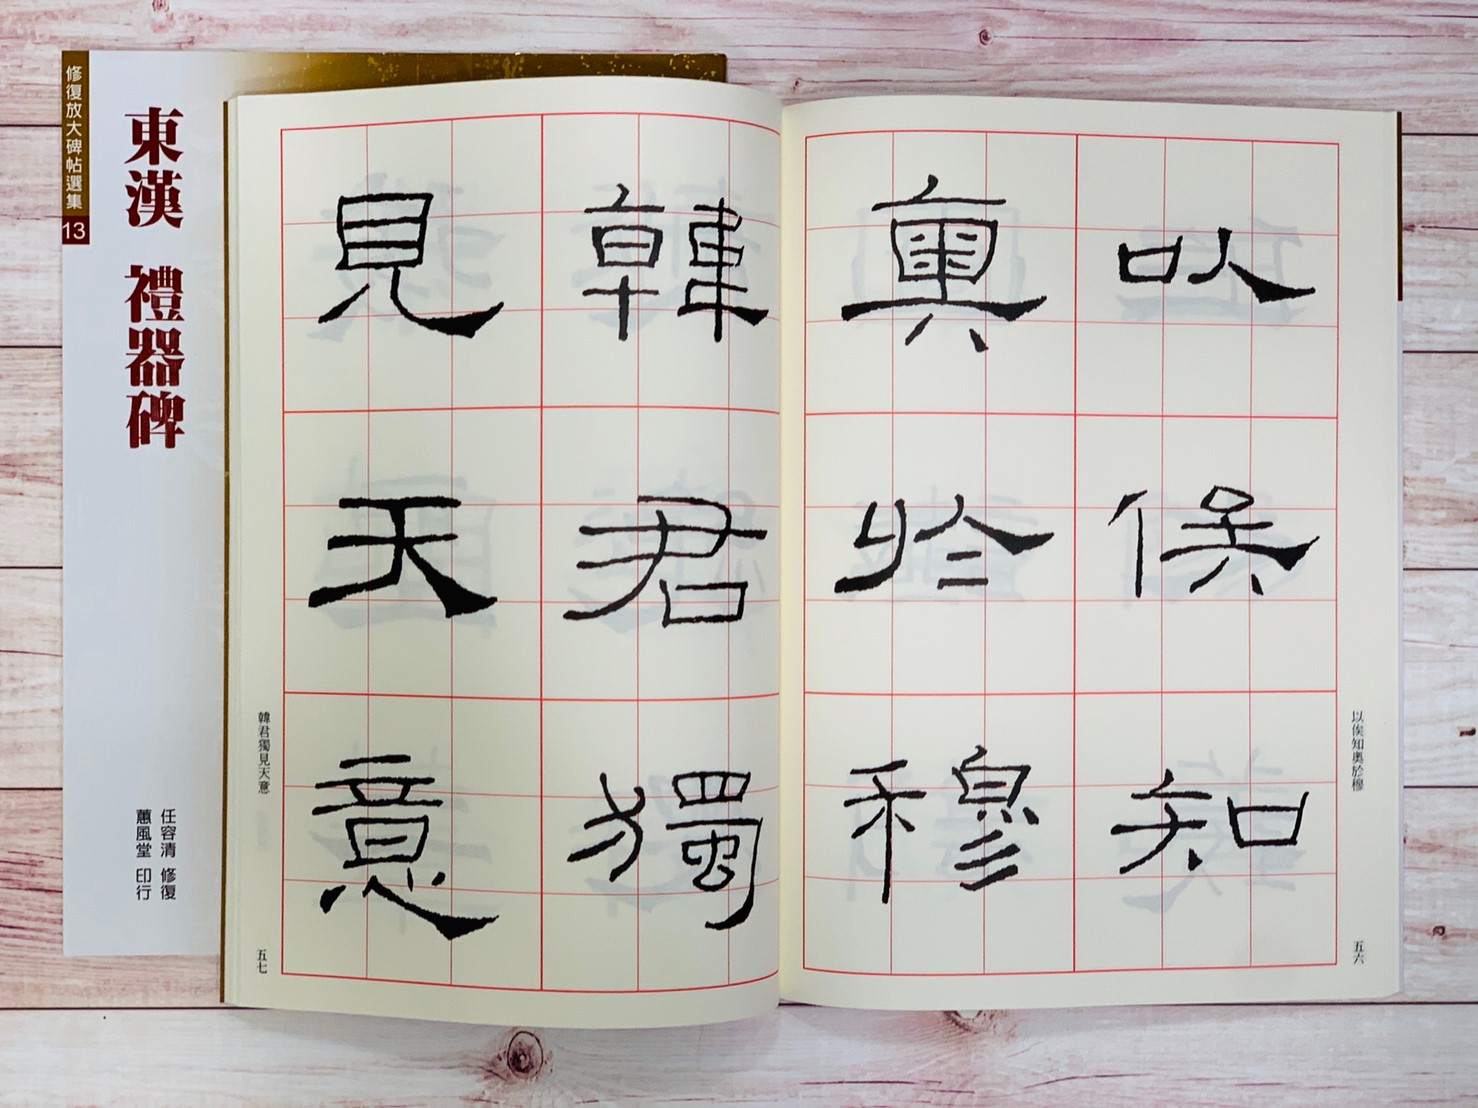 修復放大碑帖選集
13
東漢 禮器碑
任容清 修復
蕙風堂 印行
以俟知
奧於穆
以俟知奧於穆
五六
韓君獨
見天意
韓君獨見天意
五七